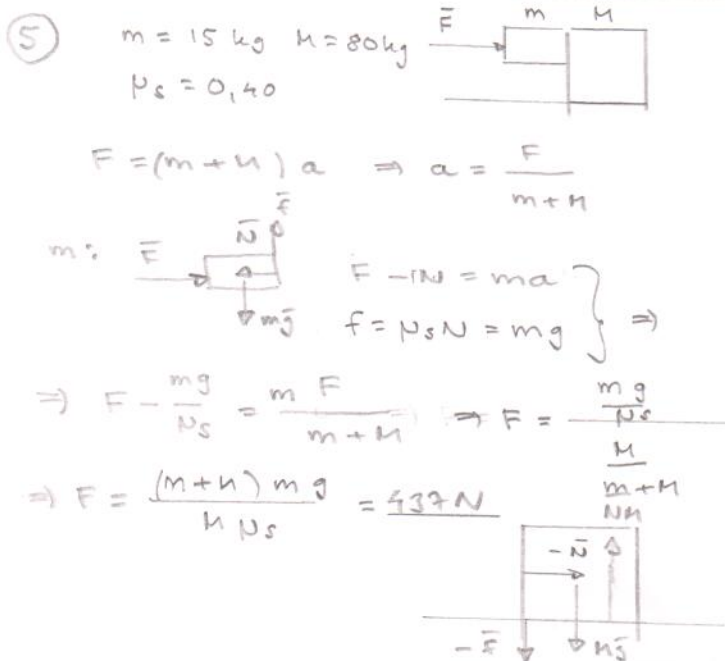 5 m = 15 kg M = 80 kg F̄ m M
μs = 0,40
F = (m + M) a ⇒ a = F / (m + M)
m: F̄ N̄ f̄ mḡ F - N = ma
f = μsN = mg } ⇒
⇒ F - mg / μs = m F / (m + M) ⇒ F = (mg / μs) / (M / (m + M))
⇒ F = (m + M) m g / (M μs) = 437 N
NM
-N̄
-F̄ Mḡ